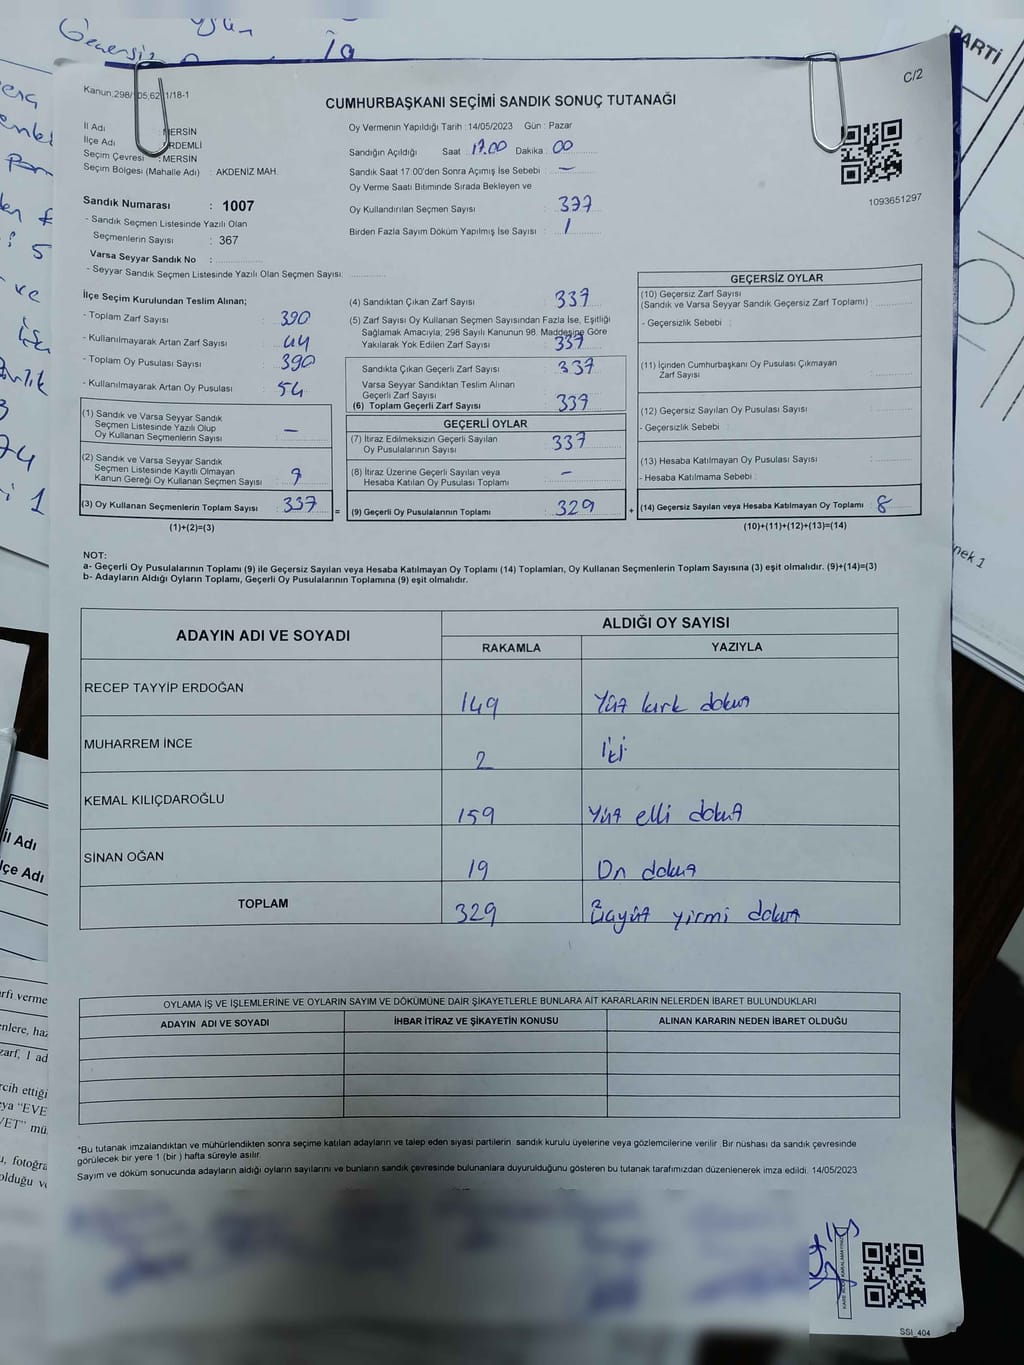 PARTİ
C/2
Kanun,298/ 05,62 1/18-1
CUMHURBAŞKANI SEÇİMİ SANDIK SONUÇ TUTANAĞI
İl Adı : MERSİN
İlçe Adı ERDEMLİ
Seçim Çevresi : MERSİN
Seçim Bölgesi (Mahalle Adı) : AKDENİZ MAH.
Oy Vermenin Yapıldığı Tarih : 14/05/2023 Gün : Pazar
Sandığın Açıldığı Saat : 17.00 Dakika : 00
Sandık Saat 17.00'den Sonra Açımış İse Sebebi : —
Oy Verme Saati Bitiminde Sırada Bekleyen ve
Oy Kullandırılan Seçmen Sayısı : 337
Birden Fazla Sayım Döküm Yapılmış İse Sayısı : 1
1093651297
Sandık Numarası : 1007
- Sandık Seçmen Listesinde Yazılı Olan
Seçmenlerin Sayısı : 367
Varsa Seyyar Sandık No :
- Seyyar Sandık Seçmen Listesinde Yazılı Olan Seçmen Sayısı:
İlçe Seçim Kurulundan Teslim Alınan;
- Toplam Zarf Sayısı : 390
- Kullanılmayarak Artan Zarf Sayısı : 44
- Toplam Oy Pusulası Sayısı : 390
- Kullanılmayarak Artan Oy Pusulası : 54
(1) Sandık ve Varsa Seyyar Sandık
Seçmen Listesinde Yazılı Olup
Oy Kullanan Seçmenlerin Sayısı : —
(2) Sandık ve Varsa Seyyar Sandık
Seçmen Listesinde Kayıtlı Olmayan
Kanun Gereği Oy Kullanan Seçmen Sayısı : 7
(3) Oy Kullanan Seçmenlerin Toplam Sayısı : 337
(1)+(2)=(3)
(4) Sandıktan Çıkan Zarf Sayısı : 337
(5) Zarf Sayısı Oy Kullanan Seçmen Sayısından Fazla İse, Eşitliği
Sağlamak Amacıyla; 298 Sayılı Kanunun 98. Maddesine Göre
Yakılarak Yok Edilen Zarf Sayısı : 337
Sandıkta Çıkan Geçerli Zarf Sayısı : 337
Varsa Seyyar Sandıktan Teslim Alınan
Geçerli Zarf Sayısı
(6) Toplam Geçerli Zarf Sayısı : 337
GEÇERLİ OYLAR
(7) İtiraz Edilmeksizin Geçerli Sayılan
Oy Pusulalarının Sayısı : 337
(8) İtiraz Üzerine Geçerli Sayılan veya
Hesaba Katılan Oy Pusulası Toplamı : —
= (9) Geçerli Oy Pusulalarının Toplamı : 329 +
GEÇERSİZ OYLAR
(10) Geçersiz Zarf Sayısı
(Sandık ve Varsa Seyyar Sandık Geçersiz Zarf Toplamı) :
- Geçersizlik Sebebi :
(11) İçinden Cumhurbaşkanı Oy Pusulası Çıkmayan
Zarf Sayısı :
(12) Geçersiz Sayılan Oy Pusulası Sayısı :
- Geçersizlik Sebebi :
(13) Hesaba Katılmayan Oy Pusulası Sayısı :
- Hesaba Katılmama Sebebi :
(14) Geçersiz Sayılan veya Hesaba Katılmayan Oy Toplamı : 8
(10)+(11)+(12)+(13)=(14)
NOT:
a- Geçerli Oy Pusulalarının Toplamı (9) ile Geçersiz Sayılan veya Hesaba Katılmayan Oy Toplamı (14) Toplamları, Oy Kullanan Seçmenlerin Toplam Sayısına (3) eşit olmalıdır. (9)+(14)=(3)
b- Adayların Aldığı Oyların Toplamı, Geçerli Oy Pusulalarının Toplamına (9) eşit olmalıdır.
ADAYIN ADI VE SOYADI
ALDIĞI OY SAYISI
RAKAMLA YAZIYLA
RECEP TAYYİP ERDOĞAN 149 Yüz kırk dokuz
MUHARREM İNCE 2 İki
KEMAL KILIÇDAROĞLU 159 Yüz elli dokuz
SİNAN OĞAN 19 On dokuz
TOPLAM 329 Üçyüz yirmi dokuz
OYLAMA İŞ VE İŞLEMLERİNE VE OYLARIN SAYIM VE DÖKÜMÜNE DAİR ŞİKAYETLERLE BUNLARA AİT KARARLARIN NELERDEN İBARET BULUNDUKLARI
ADAYIN ADI VE SOYADI
İHBAR İTİRAZ VE ŞİKAYETİN KONUSU
ALINAN KARARIN NEDEN İBARET OLDUĞU
*Bu tutanak imzalandıktan ve mühürlendikten sonra seçime katılan adayların ve talep eden siyasi partilerin sandık kurulu üyelerine veya gözlemcilerine verilir. Bir nüshası da sandık çevresinde
görülecek bir yere 1 (bir ) hafta süreyle asılır.
Sayım ve döküm sonucunda adayların aldığı oyların sayılarını ve bunların sandık çevresinde bulunanlara duyurulduğunu gösteren bu tutanak tarafımızdan düzenlenerek imza edildi. 14/05/2023
SSI_404
İl Adı